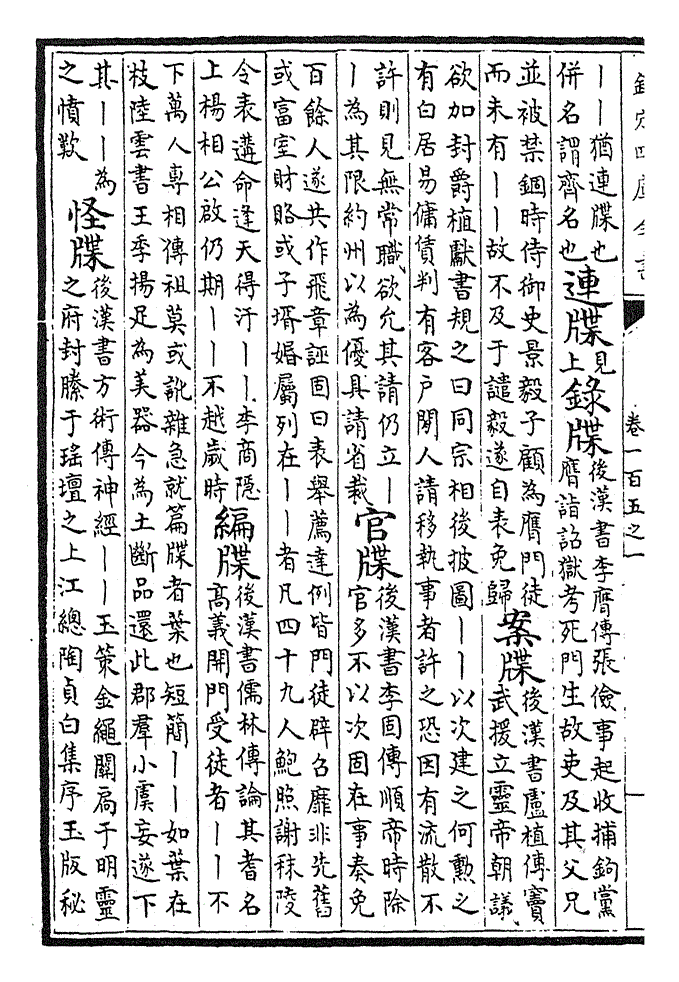 欽定四庫全書
卷一百五之一
丨丨猶連牒也
併名謂齊名也
連牒
見
上
錄牒
後漢書李膺傳張儉事起收捕鉤黨
膺詣詔獄考死門生故吏及其父兄
並被禁錮時侍御史景毅子顧為膺門徒
而未有丨丨故不及于譴毅遂自表免歸
案牒
後漢書盧植傳竇
武援立靈帝朝議
欲加封爵植獻書規之曰同宗相後披圖丨丨以次建之何勳之
有白居易傭債判有客户閒人請移執事者許之恐因有流散不
許則見無常職欲允其請仍立丨
丨為其限約州以為優具請省裁
官牒
後漢書李固傳順帝時除
官多不以次固在事奏免
百餘人遂共作飛章誣固曰表舉薦達例皆門徒辟召靡非先舊
或富室財賂或子壻婚屬列在丨丨者凡四十九人鮑照謝秣陵
令表遘命逢天得汗丨丨李商隱
上楊相公啟仍期丨丨不越歲時
編牒
後漢書儒林傳論其耆名
高義開門受徒者丨丨不
下萬人專相傳祖莫或訛雜急就篇牒者葉也短簡丨丨如葉在
枝陸雲書王季揚足為美器今為土斷品還此郡羣小虞妄遂下
其丨丨為
之憤歎
怪牒
後漢書方術傳神經丨丨玉策金繩關扃于明靈
之府封縢于瑤壇之上江總陶貞白集序玉版秘